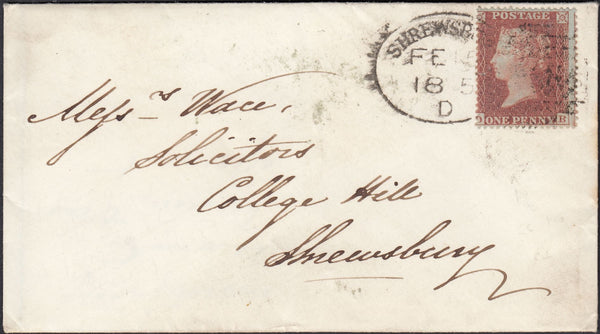 SHREWSB
FE
18 5
D
POSTAGE
ONE PENNY
B
Mess-rs Wace,
Solicitors
College Hill
Shrewsbury